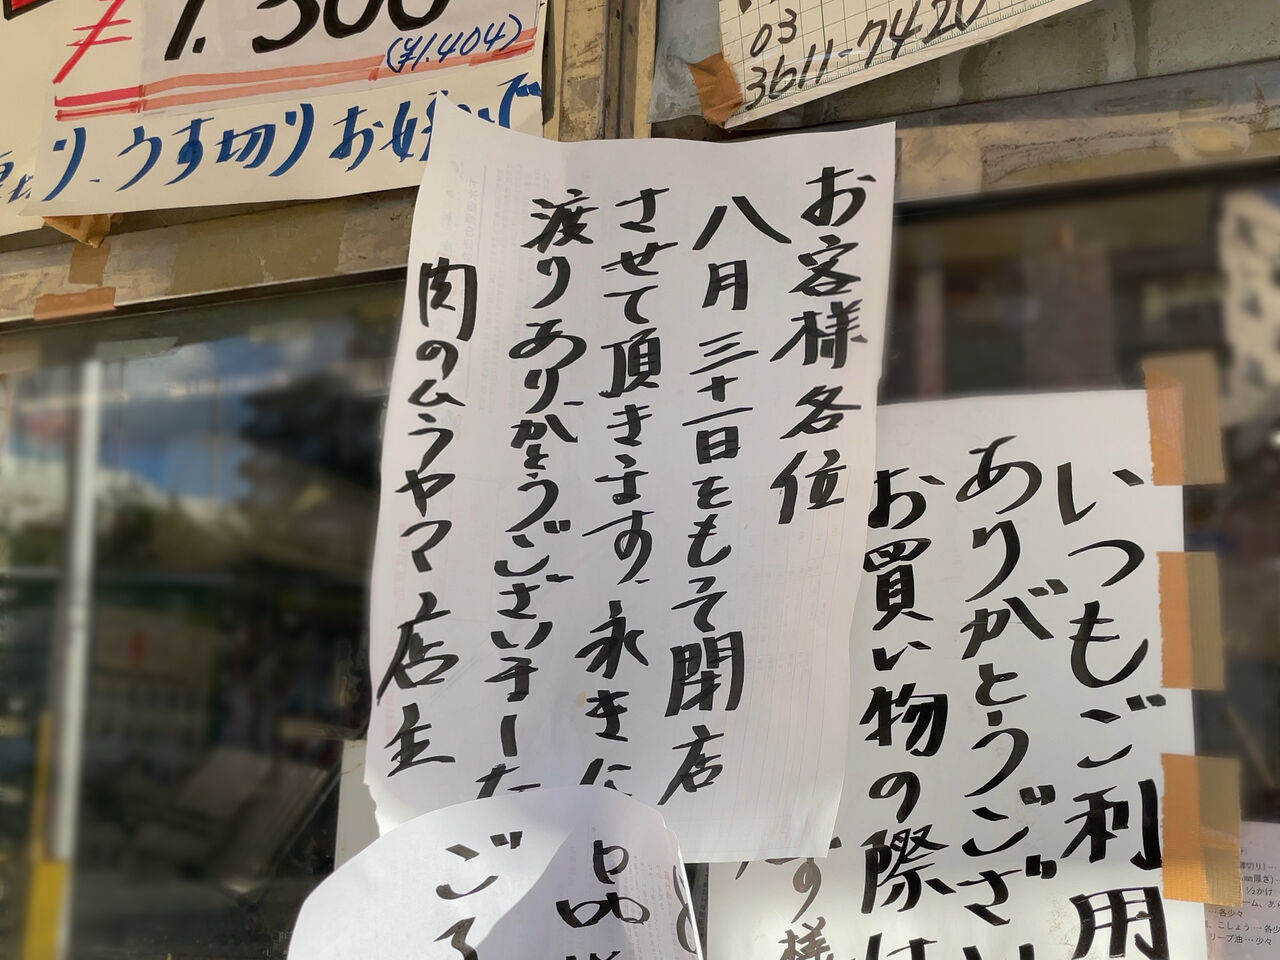 1.300
(¥1.404)
り、うす切りお好
03
3611-7420
お客様各位
八月三十一日をもって閉店
させて頂きます、永きに
渡りありがとうございました
肉のムラヤマ店主
いつもご利用
ありがとうござい
お買い物の際は
す様
品
ご